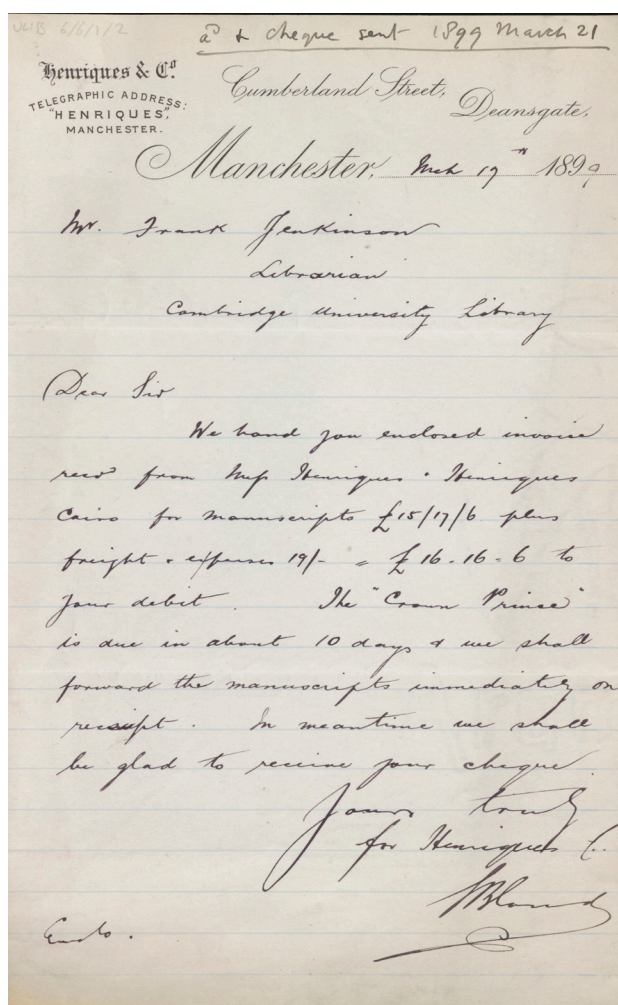 ULIB 6/6/1/2
a/c & cheque sent 1899 March 21
Henriques & Co.
TELEGRAPHIC ADDRESS:
"HENRIQUES",
MANCHESTER.
Cumberland Street,
Deansgate,
Manchester, Mch 17th 1899
Mr. Frank Jenkinson
Librarian
Cambridge University Library
Dear Sir
We hand you enclosed invoice
recd from Messrs Henriques & Henriques
Cairo for manuscripts £15/17/6 plus
freight & expenses 19/- = £16-16-6 to
your debit. The "Crown Prince"
is due in about 10 days & we shall
forward the manuscripts immediately on
receipt. In meantime we shall
be glad to receive your cheque
Yours truly
for Henriques & Co.
Enclo.